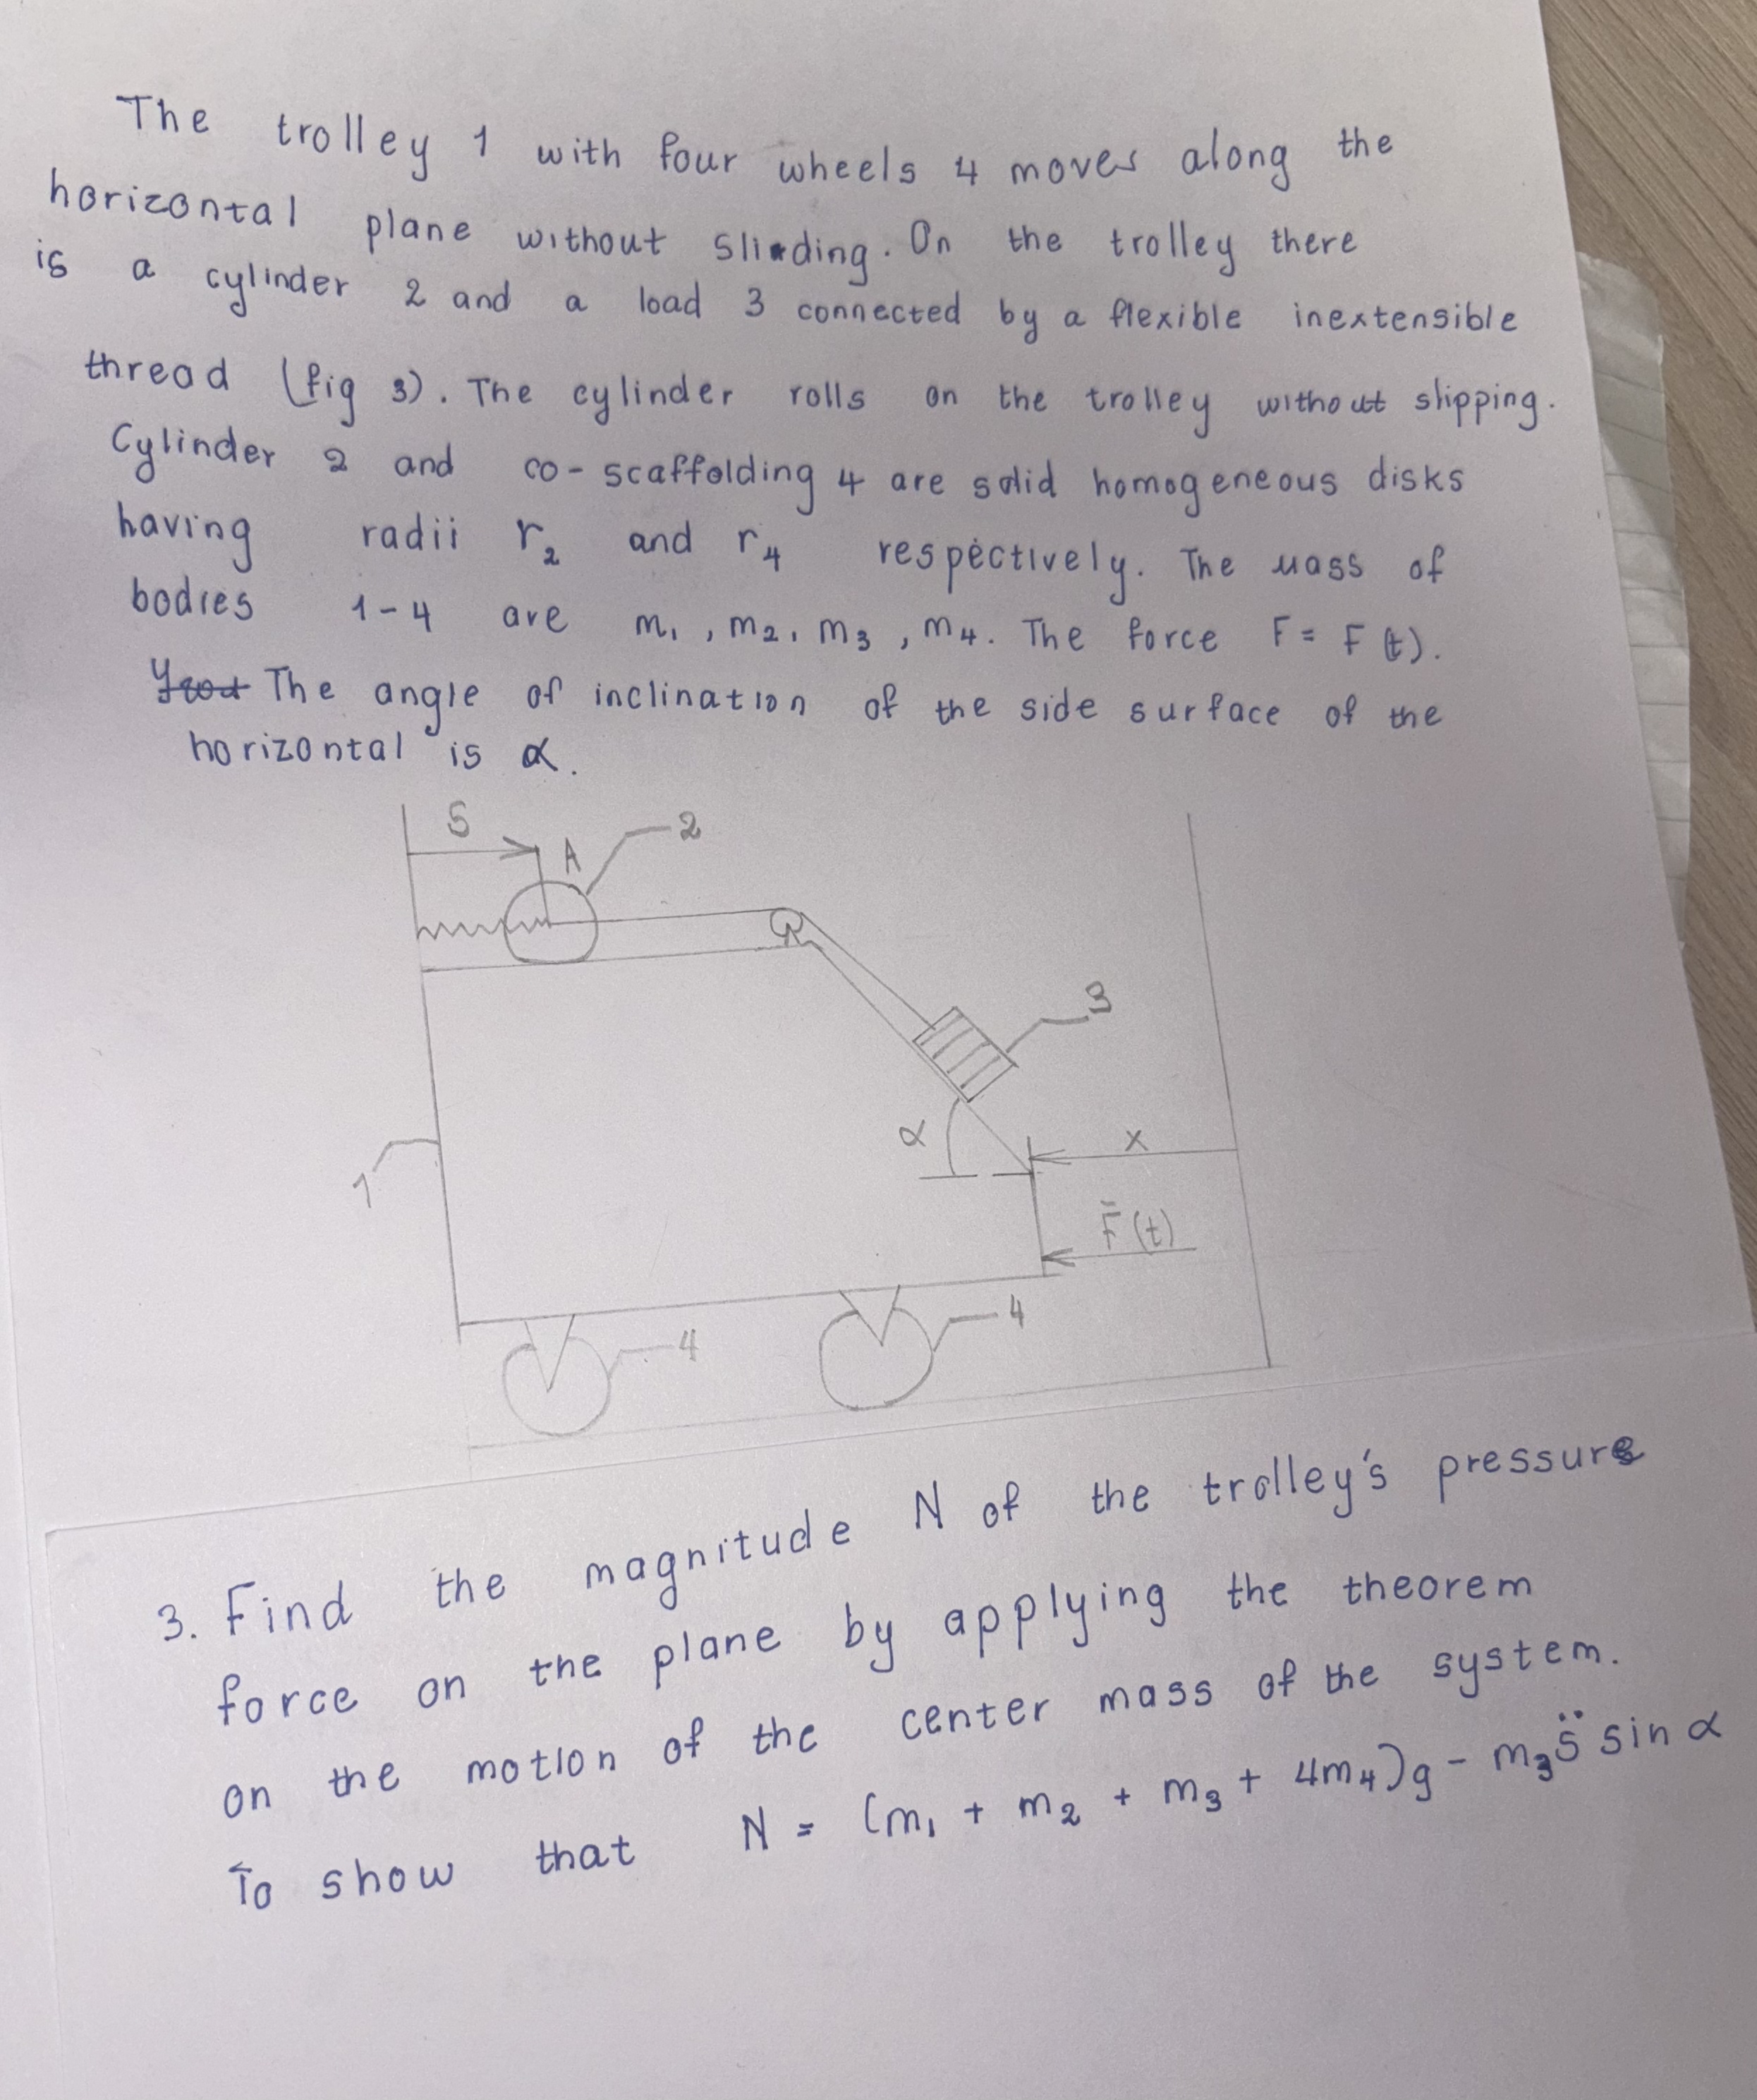 The trolley 1 with four wheels 4 moves along the
horizontal plane without sliding. On the trolley there
is a cylinder 2 and a load 3 connected by a flexible inextensible
thread (fig 3). The cylinder rolls on the trolley without slipping.
Cylinder 2 and co-scaffolding 4 are solid homogeneous disks
having radii r₂ and r₄ respectively. The mass of
bodies 1-4 are m₁, m₂, m₃, m₄. The force F = F(t).
The angle of inclination of the side surface of the
horizontal is α.
S
A
2
3
α
x
1
F̄(t)
4
4
3. Find the magnitude N of the trolley's pressure
force on the plane by applying the theorem
on the motion of the center mass of the system.
To show that N = (m₁ + m₂ + m₃ + 4m₄)g - m₃s̈ sin α